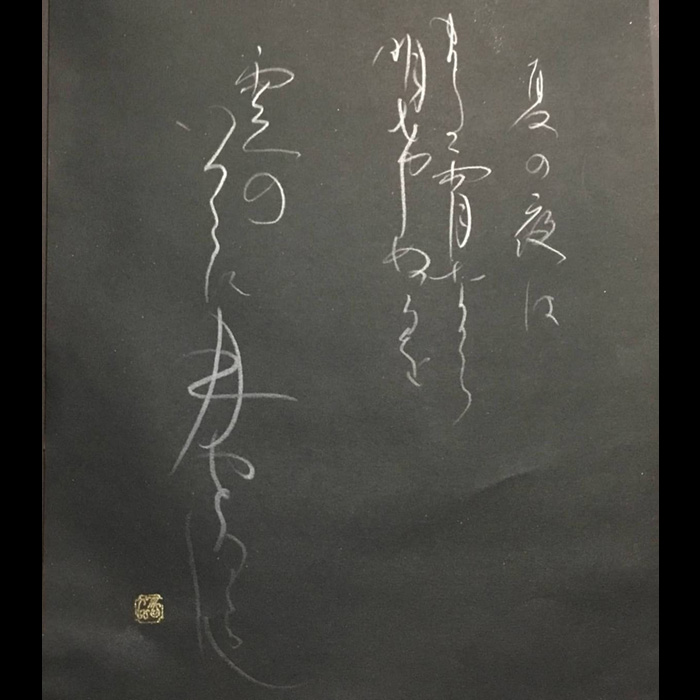 夏の夜は
また宵なから
明希ぬるを
雲の
いつこに月やとるらむ